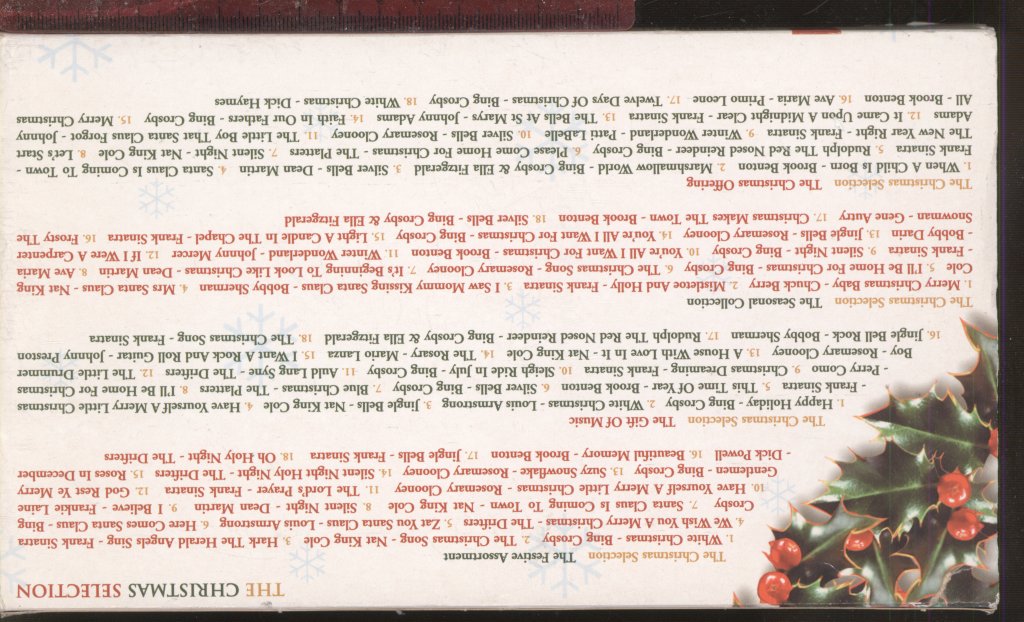 THE CHRISTMAS SELECTION
The Christmas Selection The Festive Assortment
1. White Christmas - Bing Crosby 2. The Christmas Song - Nat King Cole 3. Hark The Herald Angels Sing - Frank Sinatra
4. We Wish You A Merry Christmas - The Drifters 5. Zat You Santa Claus - Louis Armstrong 6. Here Comes Santa Claus - Bing
Crosby 7. Santa Claus Is Coming To Town - Nat King Cole 8. Silent Night - Dean Martin 9. I Believe - Frankie Laine
10. Have Yourself A Merry Little Christmas - Rosemary Clooney 11. The Lord's Prayer - Frank Sinatra 12. God Rest Ye Merry
Gentlemen - Bing Crosby 13. Suzy Snowflake - Rosemary Clooney 14. Silent Night Holy Night - The Drifters 15. Roses In December
- Dick Powell 16. Beautiful Memory - Brook Benton 17. Jingle Bells - Frank Sinatra 18. Oh Holy Night - The Drifters
The Christmas Selection The Gift Of Music
1. Happy Holiday - Bing Crosby 2. White Christmas - Louis Armstrong 3. Jingle Bells - Nat King Cole 4. Have Yourself A Merry Little Christmas
- Frank Sinatra 5. This Time Of Year - Brook Benton 6. Silver Bells - Bing Crosby 7. Blue Christmas - The Platters 8. I'll Be Home For Christmas
- Perry Como 9. Christmas Dreaming - Frank Sinatra 10. Sleigh Ride In July - Bing Crosby 11. Auld Lang Syne - The Drifters 12. The Little Drummer
Boy - Rosemary Clooney 13. A House With Love In It - Nat King Cole 14. The Rosary - Mario Lanza 15. I Want A Rock And Roll Guitar - Johnny Preston
16. Jingle Bell Rock - Bobby Sherman 17. Rudolph The Red Nosed Reindeer - Bing Crosby & Ella Fitzgerald 18. The Christmas Song - Frank Sinatra
The Christmas Selection The Seasonal Collection
1. Merry Christmas Baby - Chuck Berry 2. Mistletoe And Holly - Frank Sinatra 3. I Saw Mommy Kissing Santa Claus - Bobby Sherman 4. Mrs Santa Claus - Nat King
Cole 5. I'll Be Home For Christmas - Bing Crosby 6. The Christmas Song - Rosemary Clooney 7. It's Beginning To Look Like Christmas - Dean Martin 8. Ave Maria
- Frank Sinatra 9. Silent Night - Bing Crosby 10. You're All I Want For Christmas - Brook Benton 11. Winter Wonderland - Johnny Mercer 12. If I Were A Carpenter
- Bobby Darin 13. Jingle Bells - Rosemary Clooney 14. You're All I Want For Christmas - Bing Crosby 15. Light A Candle In The Chapel - Frank Sinatra 16. Frosty The
Snowman - Gene Autry 17. Christmas Makes The Town - Brook Benton 18. Silver Bells - Bing Crosby & Ella Fitzgerald
The Christmas Selection The Christmas Offering
1. When A Child Is Born - Brook Benton 2. Marshmallow World - Bing Crosby & Ella Fitzgerald 3. Silver Bells - Dean Martin 4. Santa Claus Is Coming To Town -
Frank Sinatra 5. Rudolph The Red Nosed Reindeer - Bing Crosby 6. Please Come Home For Christmas - The Platters 7. Silent Night - Nat King Cole 8. Let's Start
The New Year Right - Frank Sinatra 9. Winter Wonderland - Patti LaBelle 10. Silver Bells - Rosemary Clooney 11. The Little Boy That Santa Claus Forgot - Johnny
Adams 12. It Came Upon A Midnight Clear - Frank Sinatra 13. The Bells At St Marys - Johnny Adams 14. Faith In Our Fathers - Bing Crosby 15. Merry Christmas
All - Brook Benton 16. Ave Maria - Primo Leone 17. Twelve Days Of Christmas - Bing Crosby 18. White Christmas - Dick Haymes